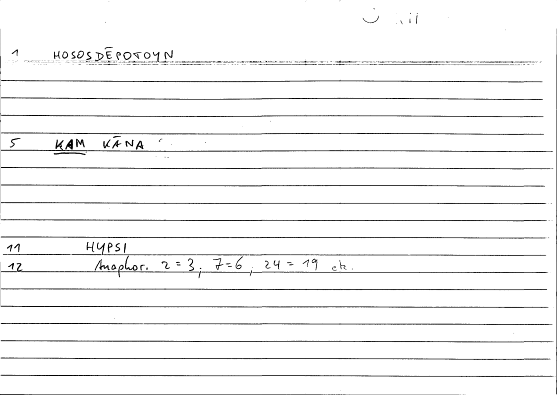 1 HOSOSDĒPOTOYN
5 KAM KĀNA
11 HYPSI
12 Anaphor. 2=3, 7=6, 24=19 etc.